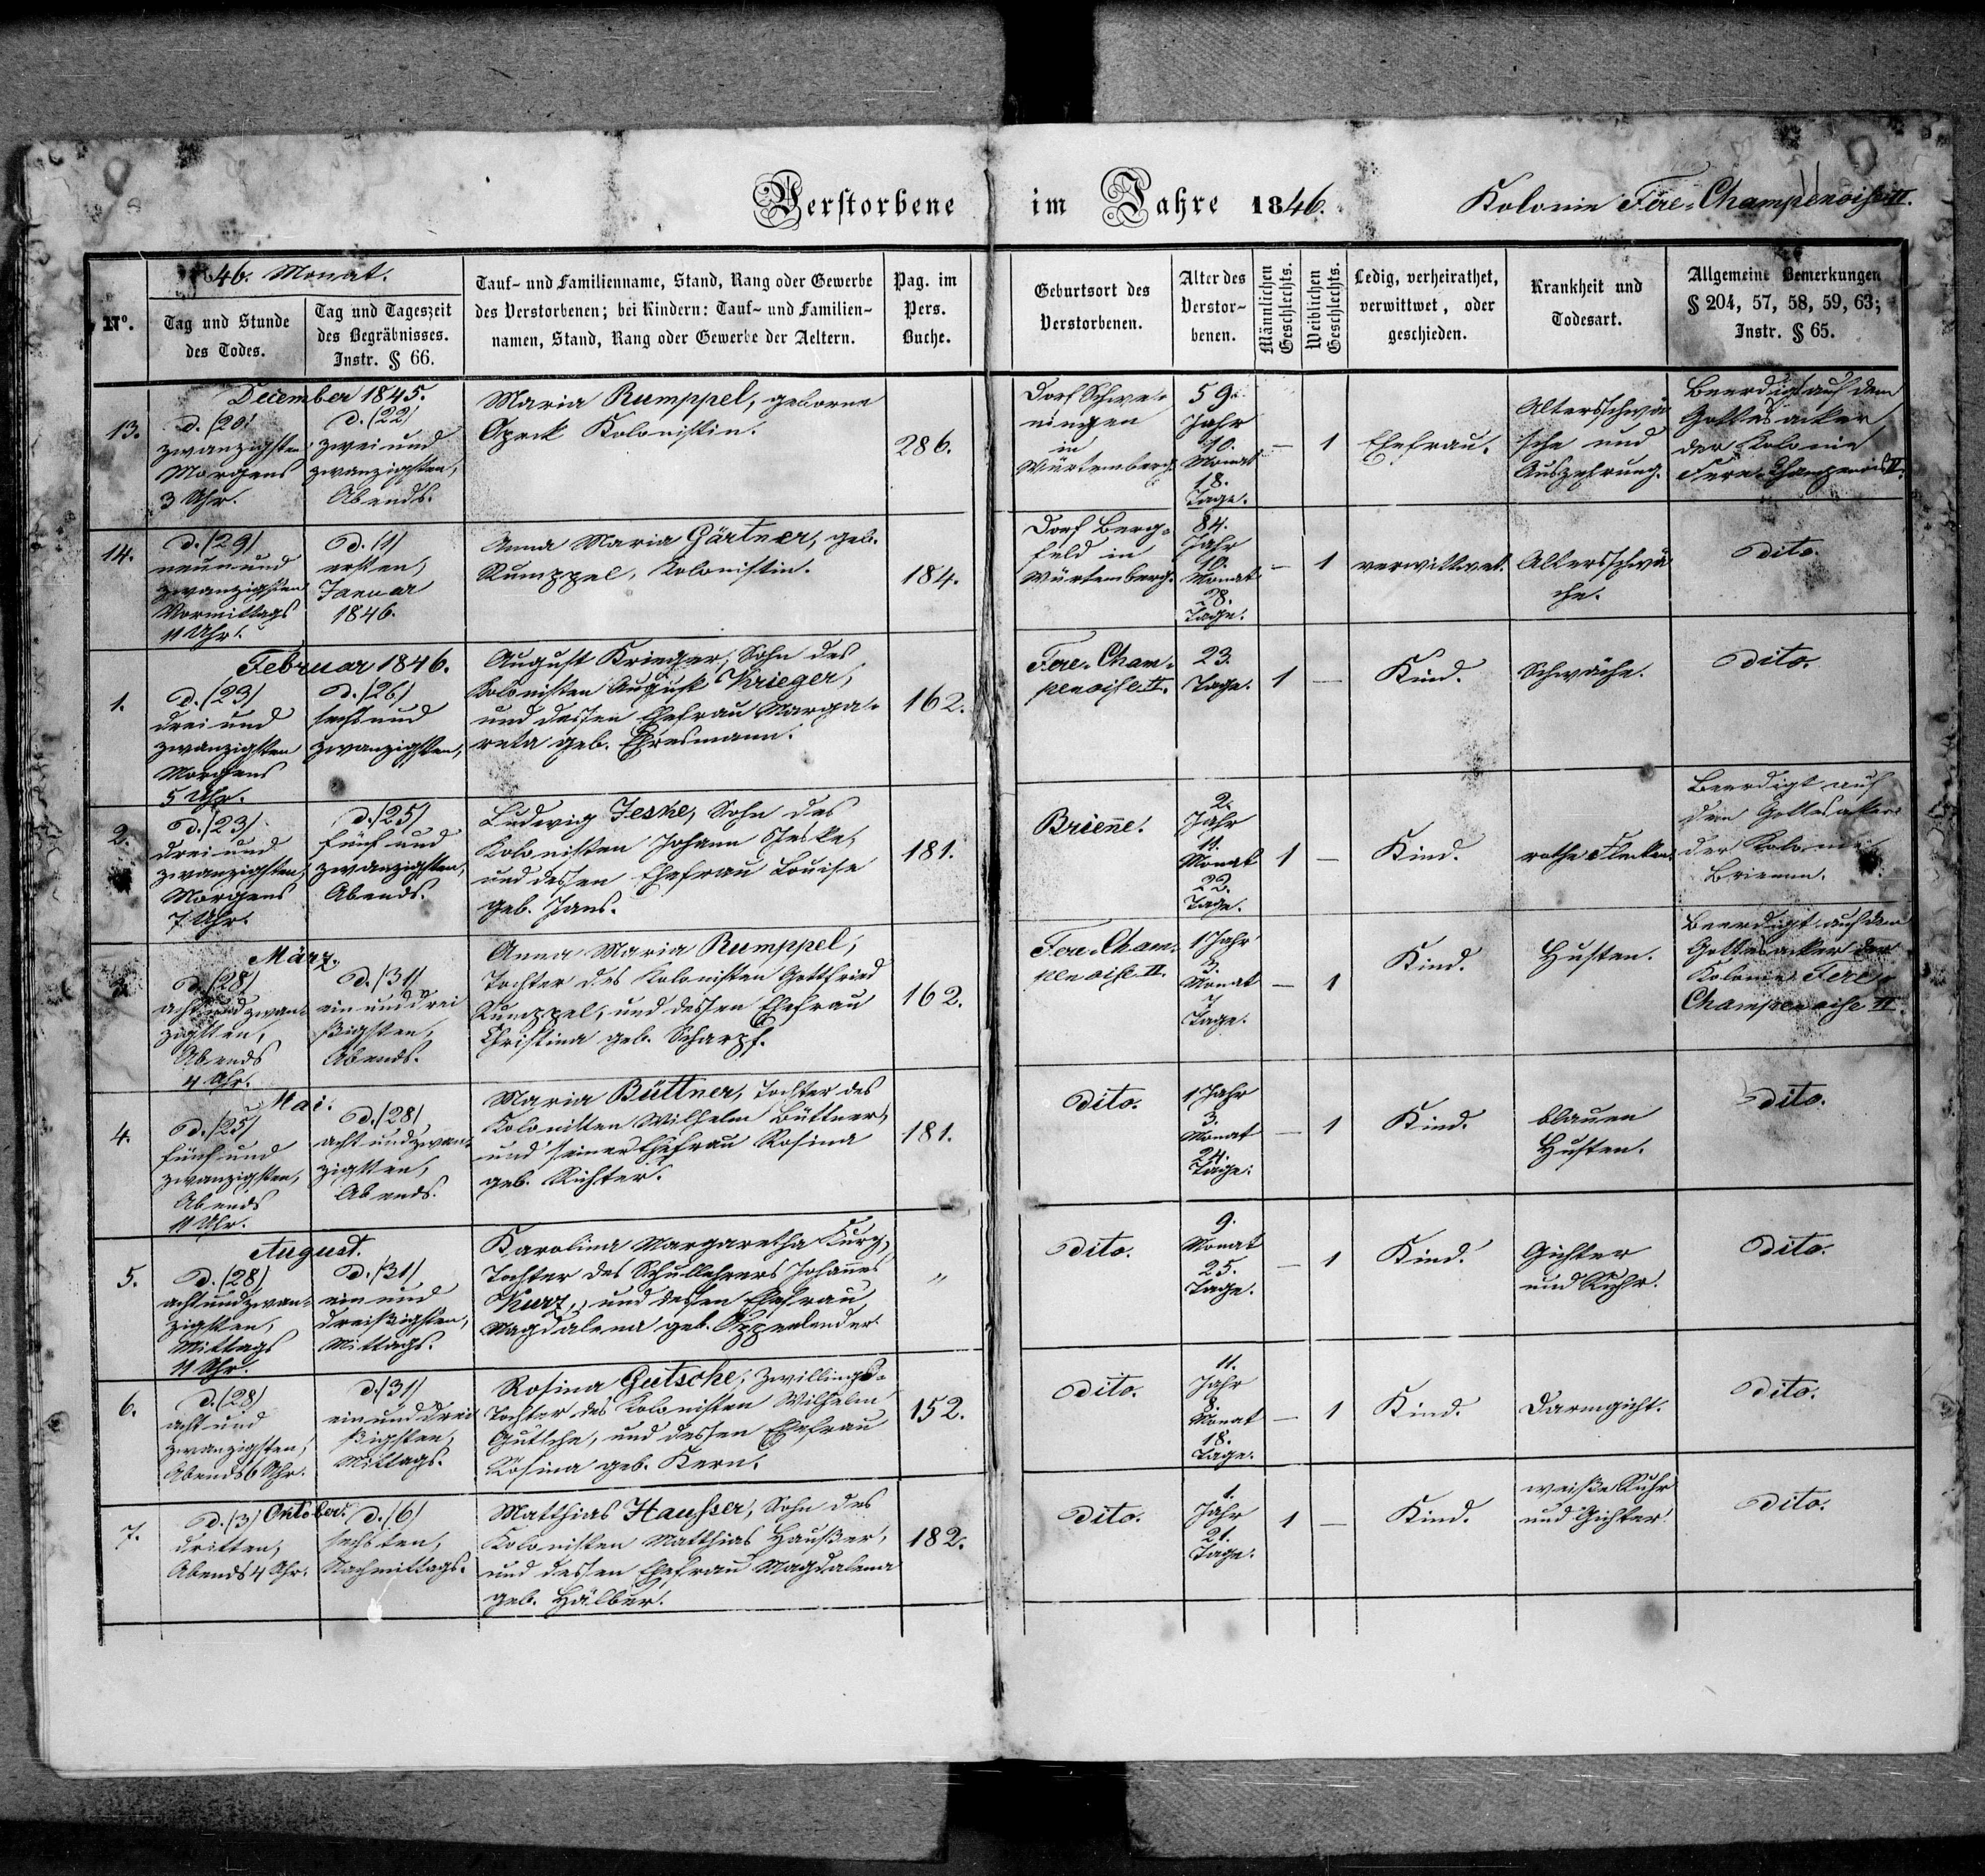 Verstorbene im Jahre 1846. Kolonie Fere-Champenoise II.
No.
1846. Monat.
Tag und Stunde
des Todes.
Tag und Tageszeit
des Begräbnisses.
Instr. § 66.
Tauf- und Familienname, Stand, Rang oder Gewerbe
des Verstorbenen; bei Kindern: Tauf- und Familien-
namen, Stand, Rang oder Gewerbe der Aeltern.
Pag. im
Pers.
Buche.
Geburtsort des
Verstorbenen.
Alter des
Verstor-
benen.
Männlichen
Geschlechts.
Weiblichen
Geschlechts.
Ledig, verheirathet,
verwittwet, oder
geschieden.
Krankheit und
Todesart.
Allgemeine Bemerkungen
§ 204, 57, 58, 59, 63;
Instr. § 65.
December 1845.
13.
d. /20/
zwanzigsten
Morgens
3 Uhr.
d. /22/
zwei und
zwanzigsten,
Abends.
Maria Rumppel, geborne
Kolonistin.
286.
Dorf Schwe-
ningen
in
Würtemberg.
59.
Jahr
10.
Monat
18.
Tage.
—
1
Ehefrau.
Altersschwä
che und
Auszehrung.
Beerdigt auf dem
Gottesacker
der Kolonie
Fere-Champenoise II.
14.
d. /29/
neun und
zwanzigsten
Vormittags
11 Uhr.
d. /1/
ersten,
Januar
1846.
Anna Maria Gärtner, geb.
Rumppel, Kolonistin.
184.
Dorf Berg-
feld in
Würtemberg.
84.
Jahr
10.
Monat
28.
Tage.
—
1
verwittwet.
Altersschwä
che.
dito.
Februar 1846.
1.
d. /23/
drei und
zwanzigsten
Morgens
5 Uhr.
d. /26/
sechs und
zwanzigsten,
August Krieger, Sohn des
Kolonisten August Krieger,
und dessen Ehefrau Marga-
reta geb. Ehresmann.
162.
Fere-Cham-
penoise II.
23.
Tage.
1
—
Kind.
Schwäche.
dito.
2.
d. /23/
drei und
zwanzigsten,
Morgens
7 Uhr.
d. /25/
fünf und
zwanzigsten,
Abends.
Ludwig Jeske, Sohn des
Kolonisten Johann Jeske,
und dessen Ehefrau Louise
geb. Jans.
181.
Brieñe.
2.
Jahr
11.
Monat
22.
Tage.
1
—
Kind.
rothe Flecken.
Beerdigt auf
dem Gottesaker
der Kolonie
Brienne.
März.
3.
d. /28/
acht und zwan-
zigsten,
Abends
4 Uhr.
d. /31/
ein und drei
ßigsten,
Abends.
Anna Maria Rumppel,
Tochter des Kolonisten Gottfried
Rumppel, und dessen Ehefrau
Christina geb. Scharpf.
162.
Fere-Cham-
penoise II.
1 Jahr
Monat
7
Tage.
—
1
Kind.
Husten.
Beerdigt auf dem
Gottesacker der
Kolonie Fere-
Champenoise II.
Mai.
4.
d. /25/
fünf und
zwanzigsten,
Abends
11 Uhr.
d. /28/
acht und zwan-
zigsten,
Abends.
Maria Büttner, Tochter des
Kolonisten Wilhelm Büttner,
und seiner Ehefrau Rosina
geb. Richter.
181.
dito.
1 Jahr
3.
Monat
24.
Tage.
—
1
Kind.
blauen
Husten.
dito.
August.
5.
d. /28/
acht und zwan-
zigsten,
Mittags
11 Uhr.
d. /31/
ein und
dreißigsten,
Mittags.
Karolina Margaretha Kurz,
Tochter des Schullehrers Johañes
Kurz, und dessen Ehefrau
Magdalena geb. Oppenlender.
"
dito.
9.
Monat
25.
Tage.
—
1
Kind.
Gichter
und Ruhr.
dito.
6.
d. /28/
acht und
zwanzigsten,
Abends 6 Uhr.
d. /31/
ein und drei
ßigsten,
Mittags.
Rosina Gutsche, Zwillings-
Tochter des Kolonisten Wilhelm
Gutsche, und dessen Ehefrau
Rosina geb. Kern.
152.
dito.
11.
Jahr
8.
Monat
18.
Tage.
—
1
Kind.
Darmgicht.
dito.
Oktober.
7.
d. /3/
dritten,
Abends 4 Uhr.
d. /6/
sechsten,
Nachmittags.
Matthias Hausser, Sohn des
Kolonisten Matthias Haußer,
und dessen Ehefrau Magdalena
geb. Hälber.
182.
dito.
1.
Jahr
21.
Tage.
1
—
Kind.
weiße Ruhr
und Gichter.
dito.